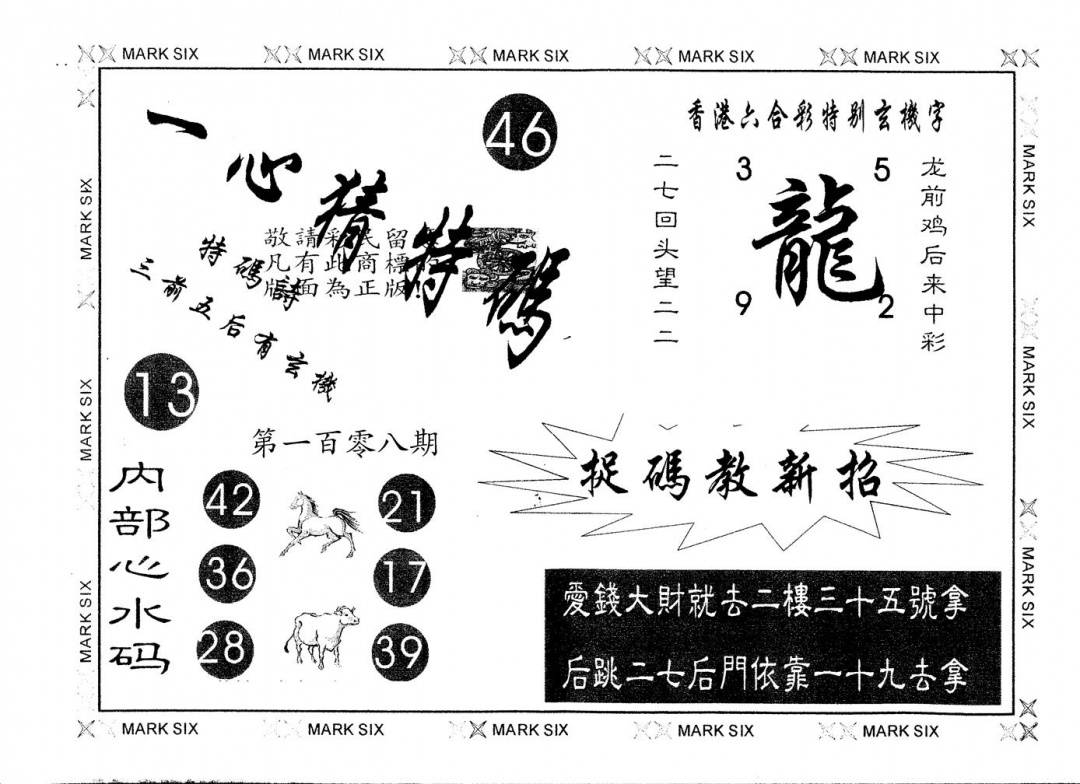 MARK SIX MARK SIX MARK SIX MARK SIX MARK SIX
一心猜特碼
46
香港六合彩特别玄機字
二七回头望二二
3 5
龍
9 2
龙前鸡后来中彩
敬請彩民留
凡有此商標
版面為正版
特碼詩
三前五后有玄機
13
第一百零八期
内部心水码
42 21
36 17
28 39
捉碼教新招
愛錢大財就去二樓三十五號拿
后跳二七后門依靠一十九去拿
MARK SIX
MARK SIX
MARK SIX
MARK SIX
MARK SIX
MARK SIX
MARK SIX MARK SIX MARK SIX MARK SIX MARK SIX